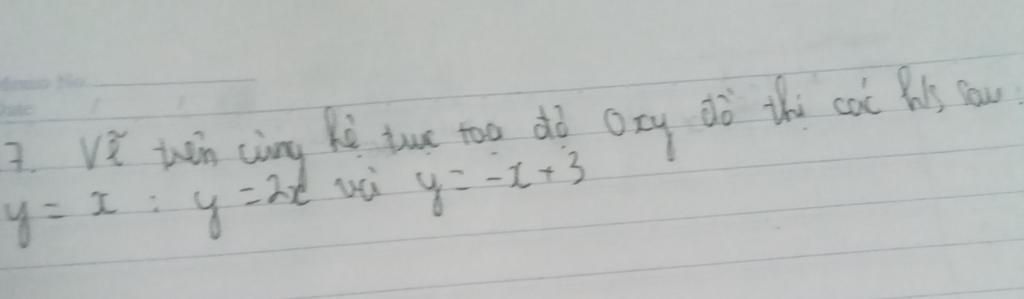 7. Vẽ trên cùng hệ trục toạ độ Oxy đồ thị các h/s sau:
y = x ; y = 2x và y = -x + 3